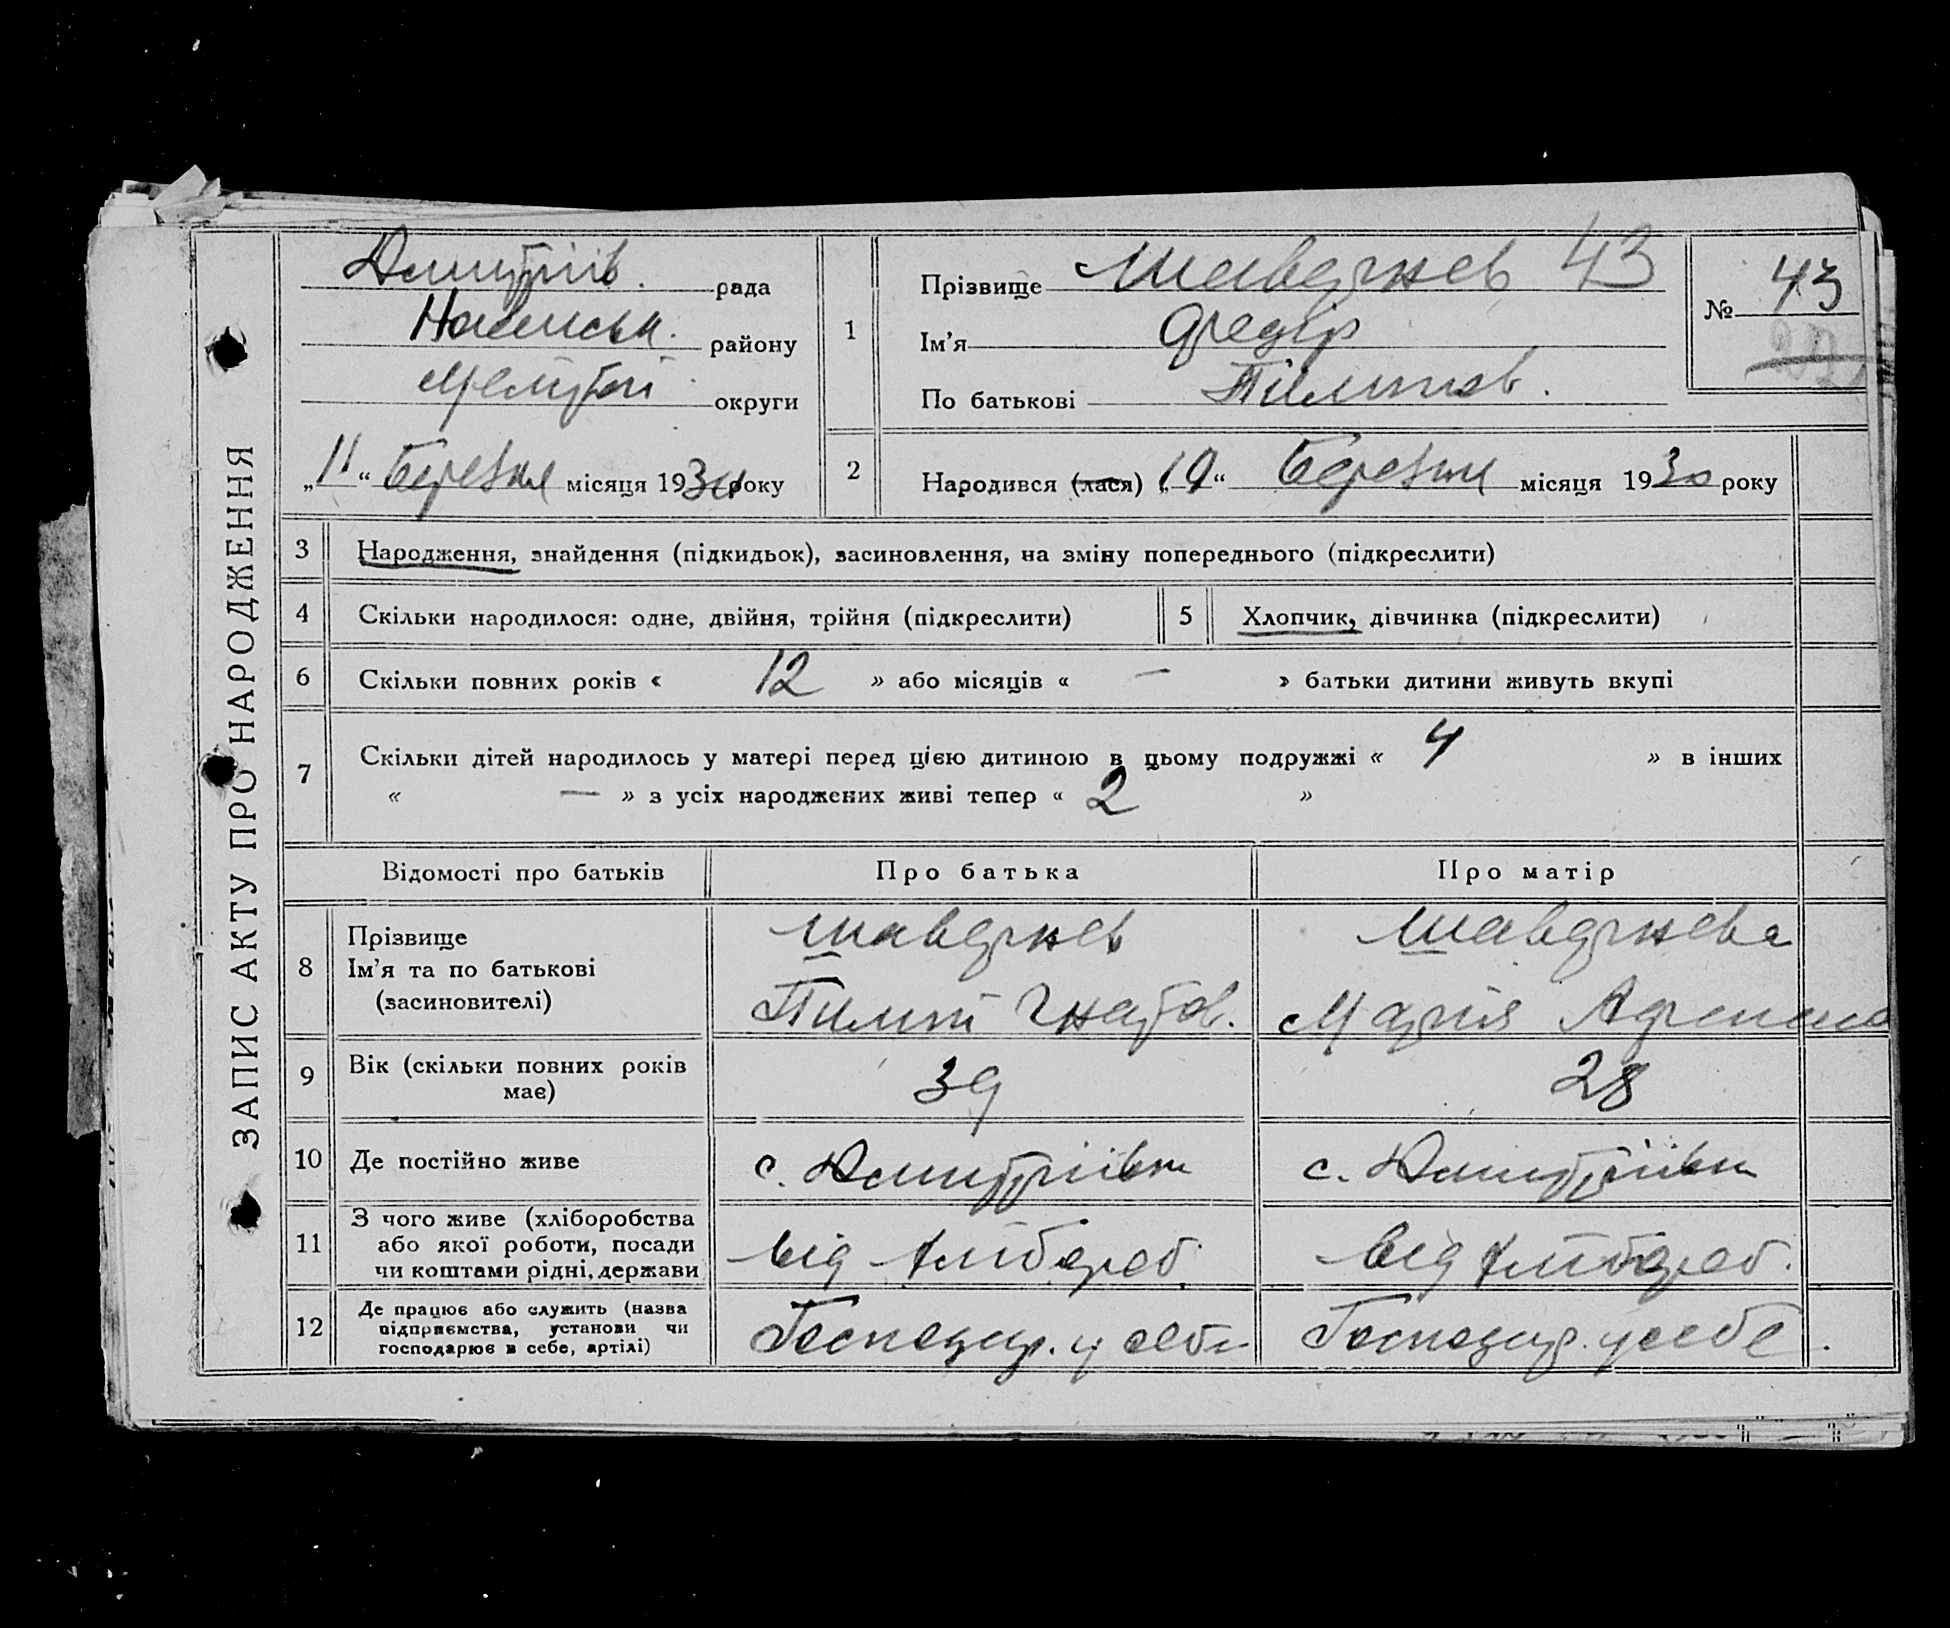 ЗАПИС АКТУ ПРО НАРОДЖЕННЯ
Дмитріїв. рада
Нагайськ. району
Меліт округи
„11“ Березня місяця 1930 року
1
Прізвище Шавдинев 43
Ім’я Федір
По батькові Пилипов.
№ 43
2
Народився (лася) „10“ Березня місяця 1930 року
3 Народження, знайдення (підкидьок), засиновлення, на зміну попереднього (підкреслити)
4 Скільки народилося: одне, двійня, трійня (підкреслити)
5 Хлопчик, дівчинка (підкреслити)
6 Скільки повних років « 12 » або місяців « — » батьки дитини живуть вкупі
7 Скільки дітей народилось у матері перед цією дитиною в цьому подружжі « 4 » в інших
« — » з усіх народжених живі тепер « 2 »
Відомості про батьків Про батька Про матір
8
Прізвище
Ім’я та по батькові
(засиновителі)
Шавдинев
Пилип Гнатов.
Шавдинева
Марія
9
Вік (скільки повних років
має)
39
28
10 Де постійно живе с. Дмитріївка с. Дмитріївка
11
З чого живе (хліборобства
або якої роботи, посади
чи коштами рідні, держави
від хлібороб.
від хлібороб.
12
Де працює або служить (назва
підприємства, установи чи
господарює в себе, артілі)
Господар. у себе
Господар. у себе.